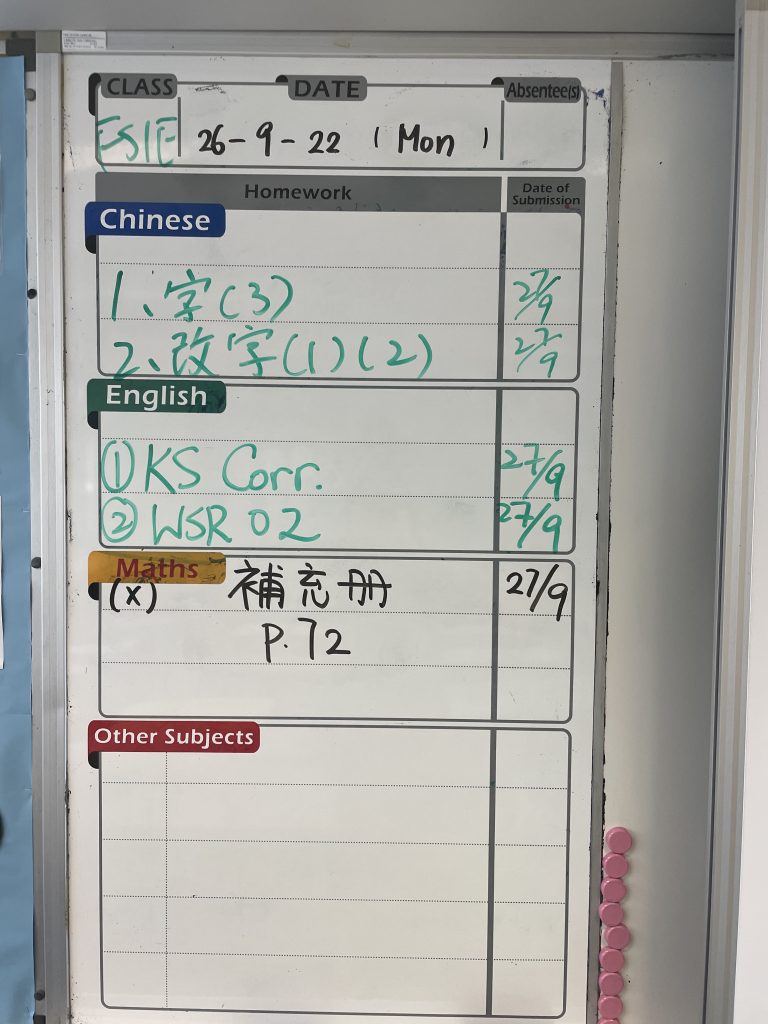 CLASS DATE Absentee(s)
26-9-22 (Mon)
Homework Date of Submission
Chinese
1、字(3) 27/9
2、改字(1)(2) 27/9
English
① KS Corr. 27/9
② WSR 02 27/9
Maths
(X) 補充册 27/9
P.72
Other Subjects